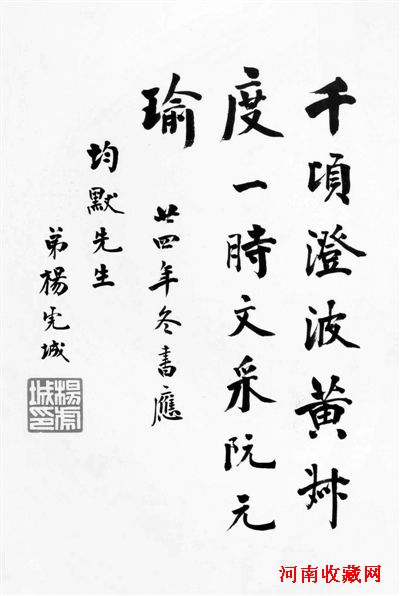 千頃澄波黃叔
度一時文采阮元
瑜
廿四年冬書應
均默先生
弟楊虎城
楊虎城印
河南收藏网